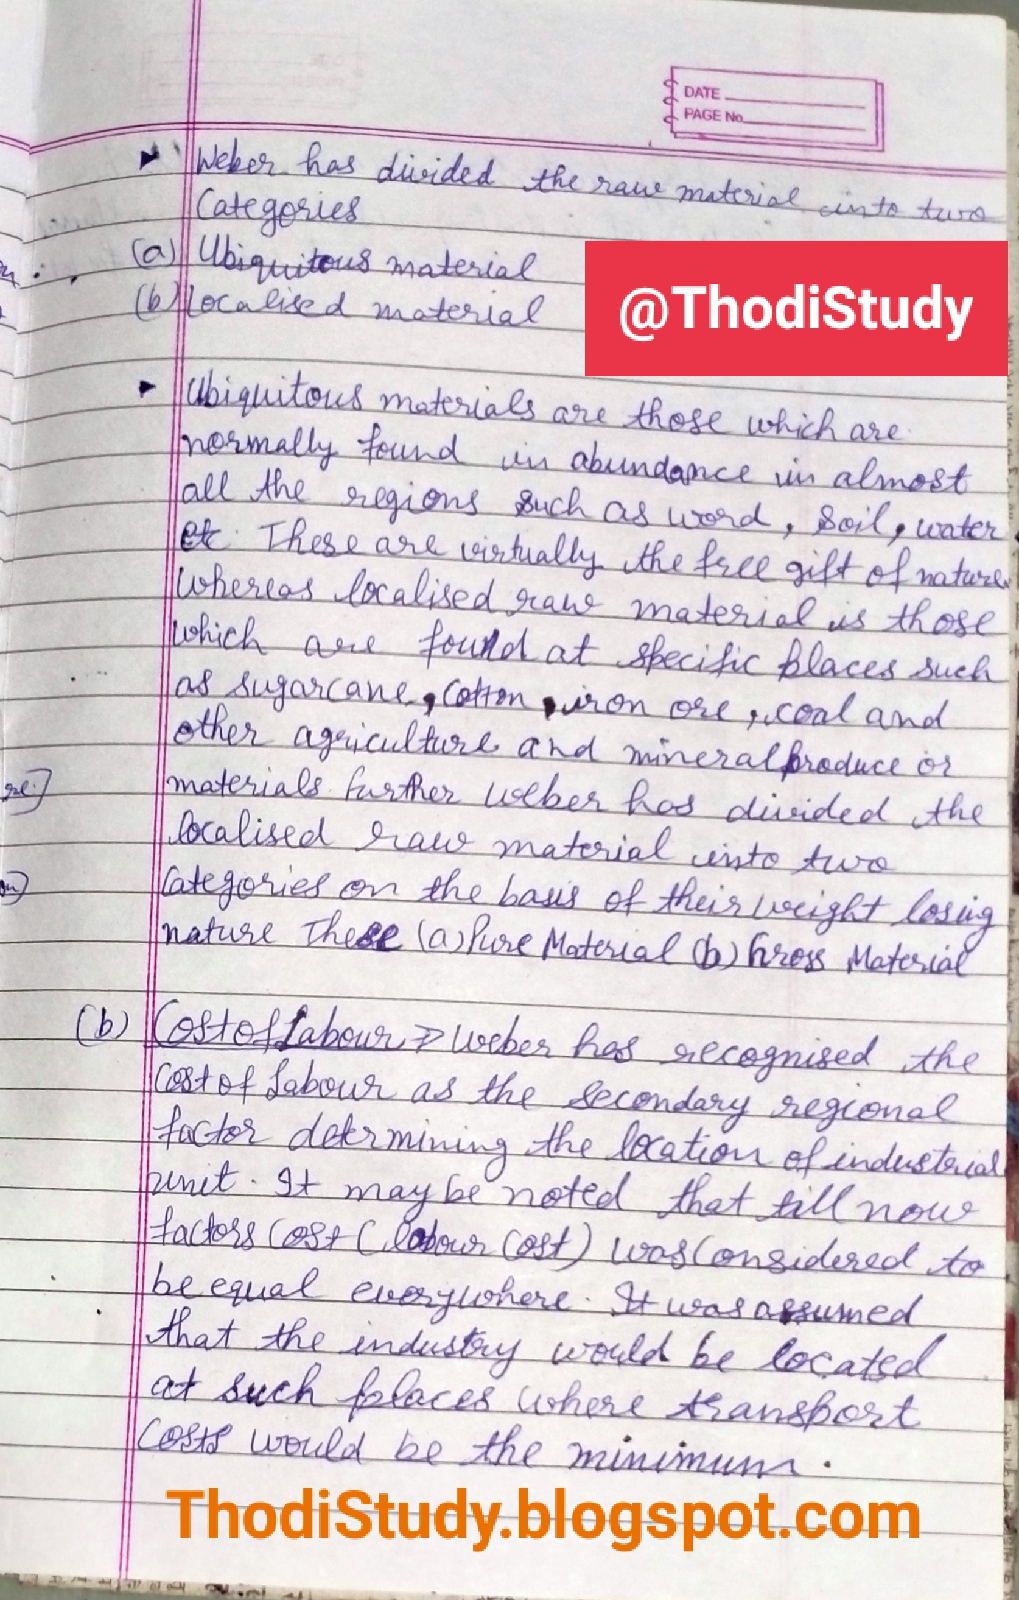 DATE
PAGE No.
Weber has divided the raw material into two
Categories
(a) Ubiquitous material
(b) Localised material
@ThodiStudy
Ubiquitous materials are those which are
normally found in abundance in almost
all the regions such as word, Soil, water
etc. These are virtually the free gift of nature
whereas localised raw material is those
which are found at specific places such
as sugarcane, Cotton, iron ore, coal and
other agriculture and mineral produce or
materials. Further Weber has divided the
localised raw material into two
Categories on the basis of their weight losing
nature These (a) Pure Material (b) Gross Material
(b) Cost of Labour → Weber has recognised the
Cost of Labour as the secondary regional
factor determining the location of industrial
unit. It may be noted that till now
factors Cost (labour Cost) was Considered to
be equal everywhere. It was assumed
that the industry would be located
at such places where transport
Costs would be the minimum.
ThodiStudy.blogspot.com